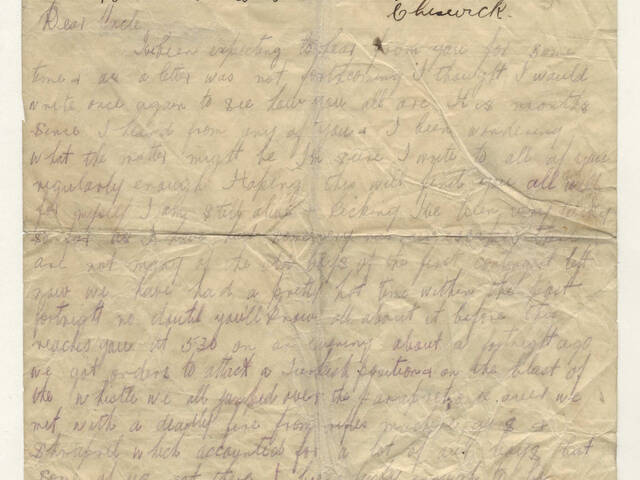 Cheswick.
Dear Uncle,
I been expecting to hear from you for some
time & as a letter was not forthcoming I thought I would
write once again to see how you all are. It is months
since I heard from any of you & I been wondering
what the matter might be Im sure I write to all of you
regularly enough Hoping this will find you all well
myself I am still alive & kicking I've been very lucky
so far as I
are not many of the old boys of the first contingent left
now we have had a pretty hot time within the last
fortnight no doubt you'll know all about it before this
reaches you at 530 on an evening about a fortnight ago
we got orders to attack a Turkish position & on the blast of
the whistle we all jumped over the parapet &
met with a deadly fire from rifles machine guns &
shrapnel which accounted for a lot of our boys but
some of us got there I